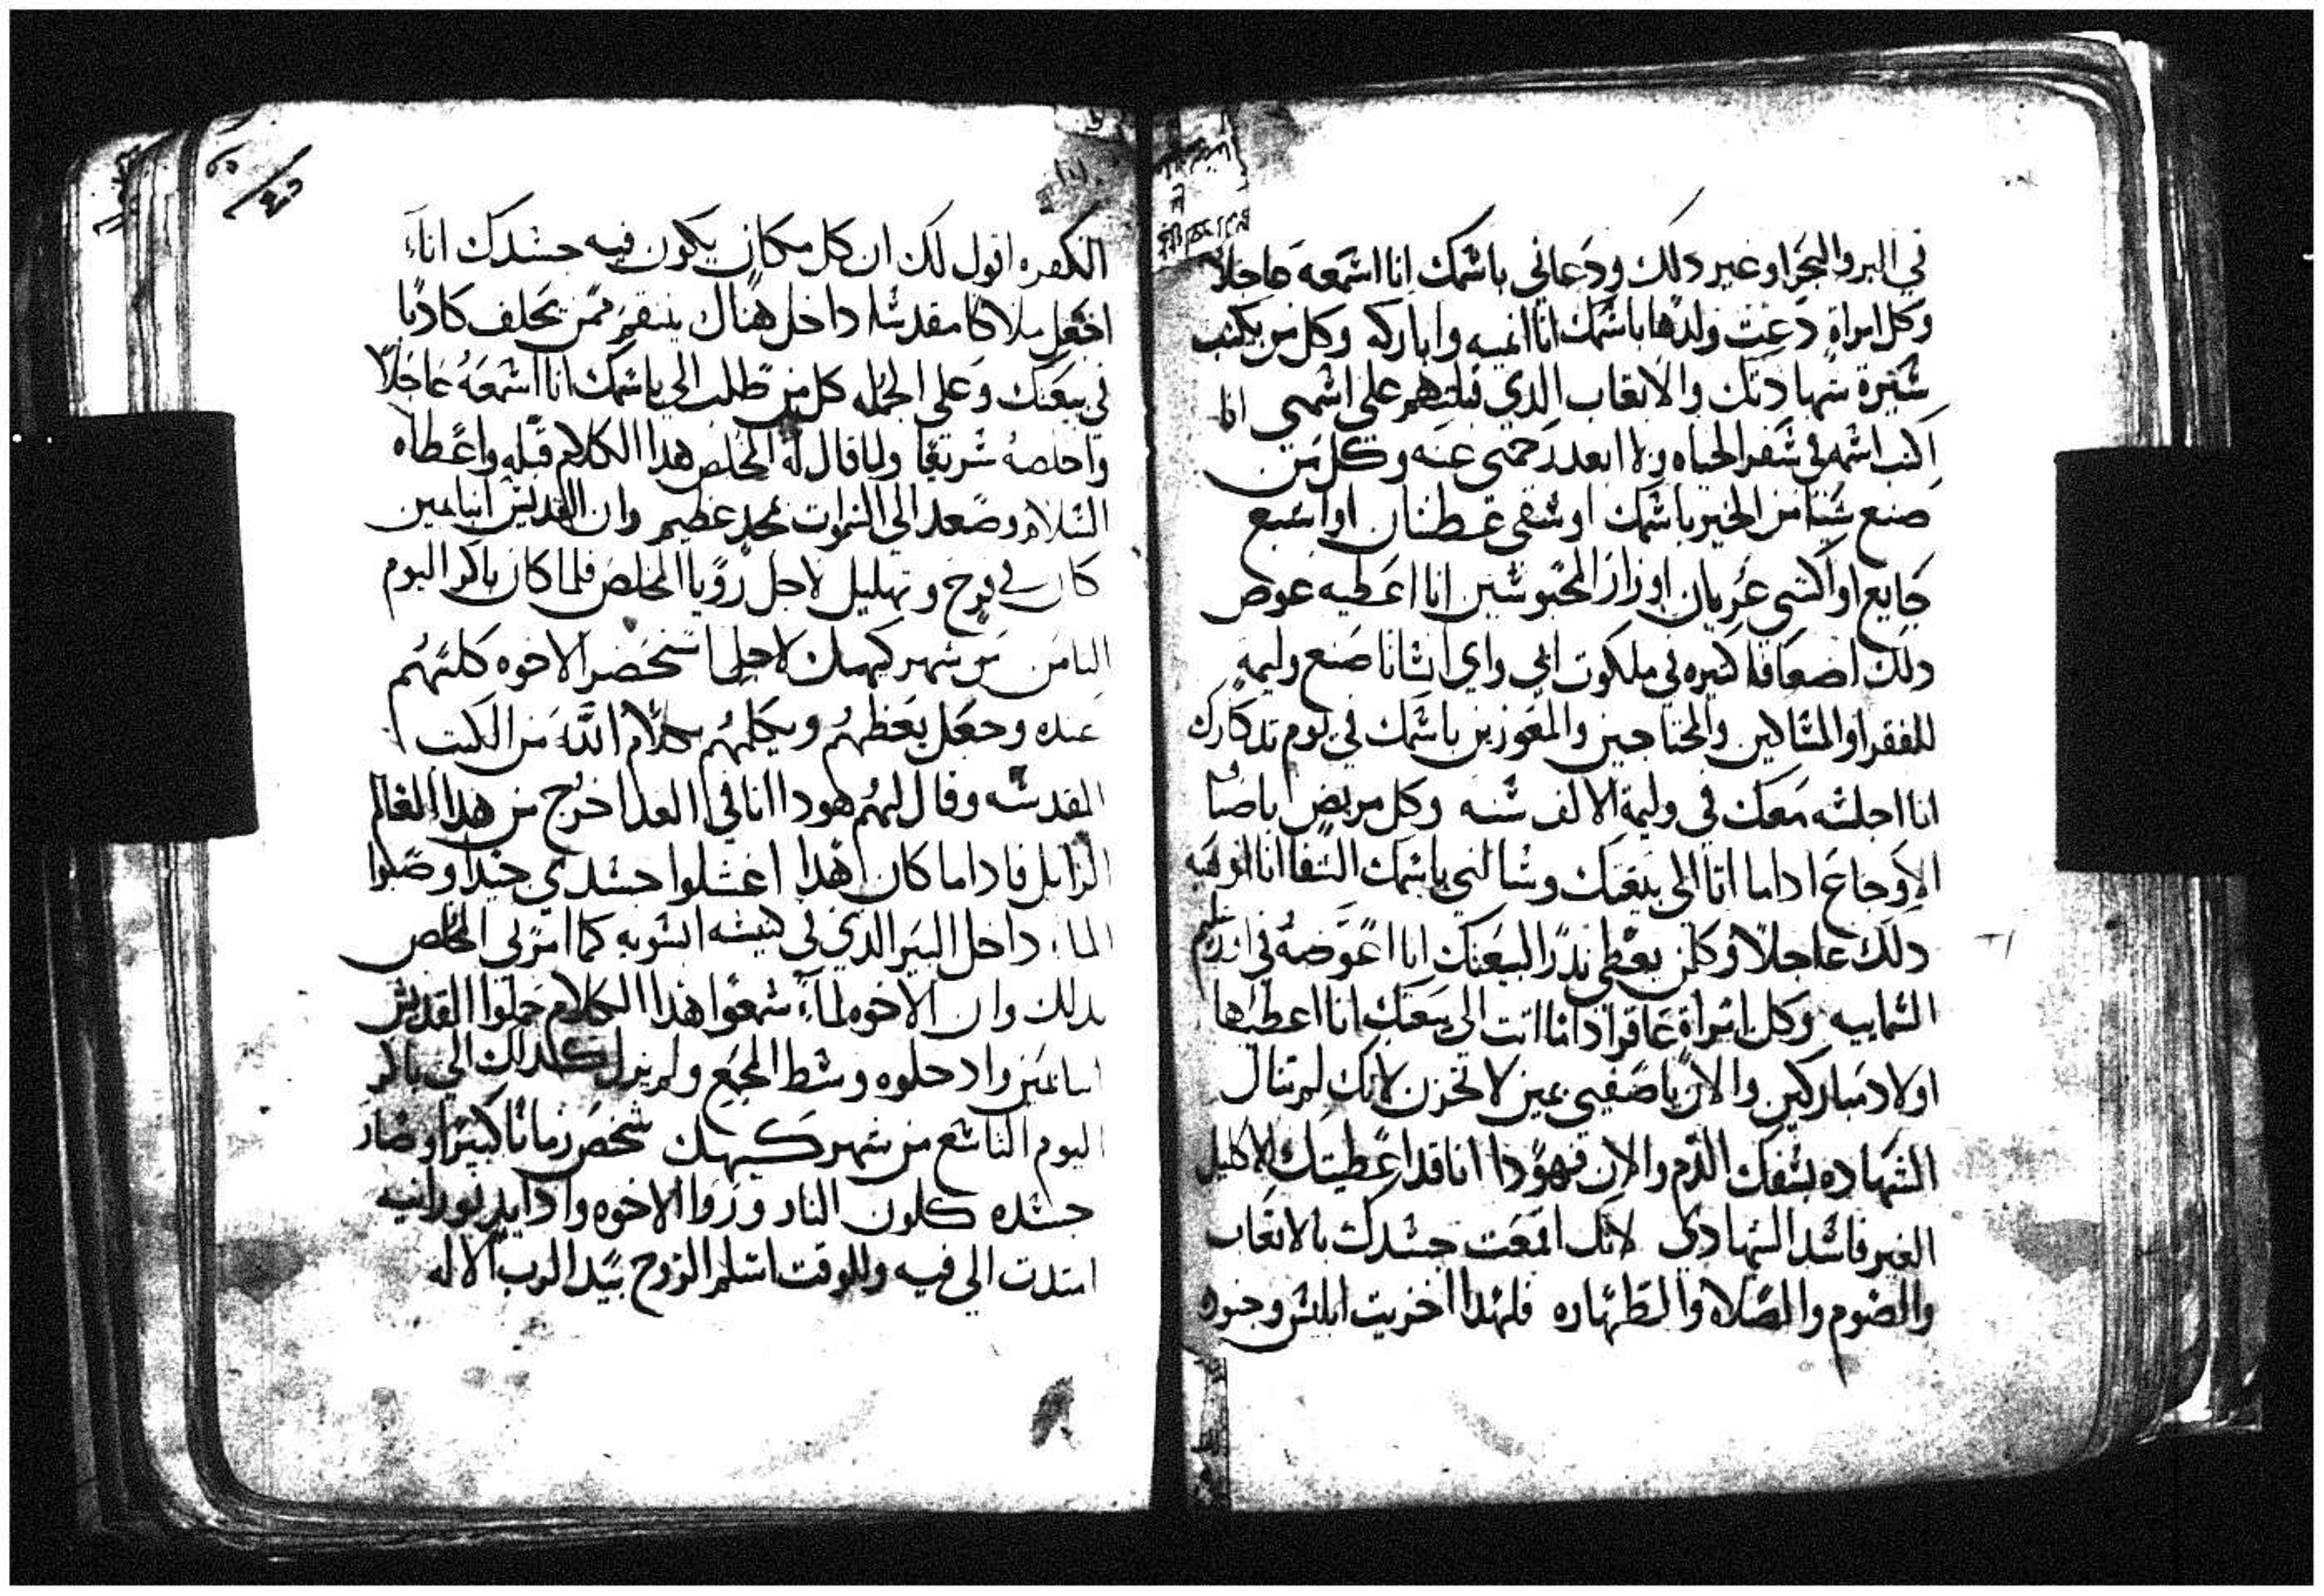 في البر والبحر او غير دلك ودعاني باشمك انا اشمعه عاجلا
وكل امراة دعت ولدها باشمك انا انميه واباركه وكل من يكتب
شيرة شهادتك والاتعاب الدي قبلتهم على اشمي انا
اكتب اشمه في شفر الحياه ولا ابعد رحمتي عنه وكل من
صنع شيا من الخير باشمك او شقي عطشان او اشبع
جايع او اكشي عريان او زار المحبوشين انا اعطيه عوض
دلك اضعافا كثيره في ملكوت ابي واي انشانا صنع وليمه
للفقرا والمشاكين والمحتاجين والمعوزين باشمك في يوم تدكارك
انا اجلشه معك في وليمة الالف شنه وكل مريض باصناف
الاوجاع ادا ما اتا الى بيعتك وشالني باشمك الشفا انا اوهبه
دلك عاجلا وكلمن يعطي ندرا لبيعتك انا اعوضه في اورشليم
الشماييه وكل امراة عاقر ادا ما اتت الى بيعتك انا اعطيها
اولاد مباركين والان ياصفيي يمين لا تحزن لانك لم تنال
الشهاده بشفك الدم والان فهودا انا قد اعطيتك الاكليل
الغير فاشد الشهادي لانك اقمعت جشدك بالاتعاب
والصوم والصلاه والطهاره فلهدا اخزيت ابليش وجنوده
الكفره اقول لك ان كل مكان يكون فيه جشدك انا
اجعل ملاكا مقدشا داخل هناك ينتقم ممن يحلف كادبا
في بيعتك وعلى الجمله كل من طلب الي باشمك انا اشمعه عاجلا
واخلصه شريعا ولما قال له المخلص هدا الكلام قبله واعطاه
الشلام وصعد الى الشموات بمجد عظيم وان القديش انبا يمين
كان في فرح وتهليل لاجل رويا المخلص فلما كان باكر اليوم
الثامن من شهر كيهك لاجل ما شخضر الاخوه كلهم
عنده وجعل يعظهم ويكلمهم بكلام الله من الكتب
المقدشه وقال لهم هودا انا في الغد اخرج من هدا العالم
الزايل فادا ما كان هدا اغشلوا جشدي جيدا وصبوا
الما داخل البير الدي في كنيشه انشويه كما امرني المخلص
بدلك وان الاخوه لما شمعوا هدا الكلام حملوا القديش
انبا يمين وادخلوه وشط المجمع ولم يزل كدلك الى باكر
اليوم التاشع من شهر كيهك شخص زمانا كبيرا وصار
جشده كلون النار وراوا الاخوه وادا يد نورانيه
امتدت الى فيه وللوقت اشلم الروح بيد الرب الاله